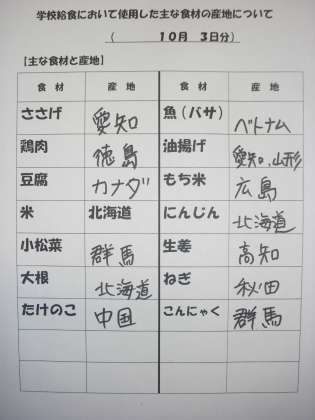 学校給食において使用した主な食材の産地について
( 10月 3日分)
【主な食材と産地】
食 材 産 地 食 材 産 地
ささげ 愛知 魚(バサ) ベトナム
鶏肉 徳島 油揚げ 愛知、山形
豆腐 カナダ もち米 広島
米 北海道 にんじん 北海道
小松菜 群馬 生姜 高知
大根 北海道 ねぎ 秋田
たけのこ 中国 こんにゃく 群馬